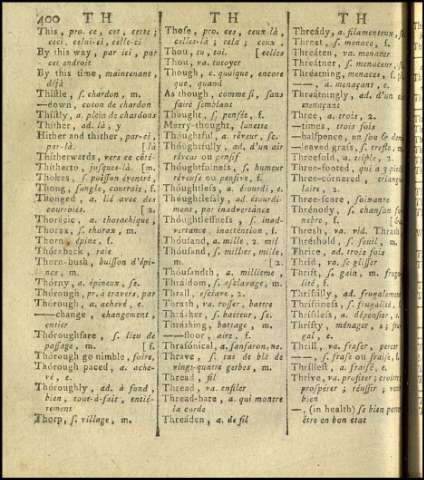 400 T H
T H
T H
This, pro. ce, cet, cette;
ceci, celui-ci, celle-ci
By this way, par ici, par
cet endroit
By this time, maintenant,
déjà
Thistle, s. chardon, m.
—down, coton de chardon
Thistly, a. plein de chardons
Thither, ad. là, y
Hither and thither, par-ci,
par-là. [là
Thitherwards, vers ce côté-
Thitherto, jusques-là. [m.
Thong, sangle, courroie, f.
Thonged, a. lié avec des
courroies. [2.
Thoracic, a. thorachique,
Thorax, s. thorax, m.
Thorn, épine, f.
Thornback, raie
Thorn-bush, buisson d'épi-
nes, m.
Thórny, a. épineux, se.
Thórough, pr. à travers, par
Thórough, a. achevé, e.
—change, changement,
entier
Thóroughfare, s. lieu de
passage, m. [f.
Thórough go nimble, foire,
Thórough paced, a. ache-
vé, e.
Thóroughly, ad. à fond,
bien, tout-à-fait, entié-
rement
Thorp, s. village, m.
Those, pro. ces, ceux-là,
celles-là; cela; ceux,
Thou, tu, toi. [celles
Thou, va. tutoyer
Though, c. quoique, encore
que, quand
As though, comme si, sans
faire semblant
Thought, s. pensée, f.
Merry-thought, lunette
Thóughtful, a. rêveur, se.
Thóughtfully, ad. d'un air
rêveur ou pensif
Thóughtfulness, s. humeur
rêveuse ou pensive, f.
Thóughtless, a. étourdi, e.
Thóughtlessly, ad. étourdi-
ment par inadvertance
Thóughtlessness, s. inad-
vertance, inattention, f.
Thóusand, a. mille, 2. mil
Thóusand, s. millier, mille,
m. [2.
Thóusandth, a. millieme,
Thráldom, s. esclavage, m.
Thrall, esclave, 2.
Thrash, va. rosser, battre
Thrásher, s. batteur, se.
Thráshing, battage, m.
—floor, aire, f.
Thrasónical, a. fanfaron, ne.
Thrave, s. tas de blé de
vingt-quatre gerbes, m.
Thread, fil
Thread, va. enfiler
Thread-bare, a. qui montre
la corde
Threáden, a. de fil
Threády, a. filamenteux,
Threat, s. menace, f.
Threáten, va. menacer
Threátner, s. menaceur,
Threátning, menace, f.
—, a. menaçant, e.
Threátningly, ad. d'un
menaçant
Three, a. trois, 2.
—times, trois fois
—halfpence, un sou & dem
—leaved grass, s. trefle,
Threefold, a. triple, 2.
Three-footed, qui a 3 pié
Three-cornered, triangu-
laire, 2.
Three-score, soixante
Thrénody, s. chanson fu-
nebre, f.
Thresh, va. vid. Thrash
Thréshold, s. seuil, m.
Thrice, ad. trois fois
Thrift, s. gain, m. frugal-
ité, f.
Thríftily, ad. frugalement
Thríftiness, s. frugalité,
Thríftless, a. dépensier,
Thrífty, ménager, e; fru-
gal, e.
Thrill, va. fraser, percer
Thrive, va. profiter; croître
prospérer; réussir; venir
bien
—, (in health) se bien porter
être en bon état